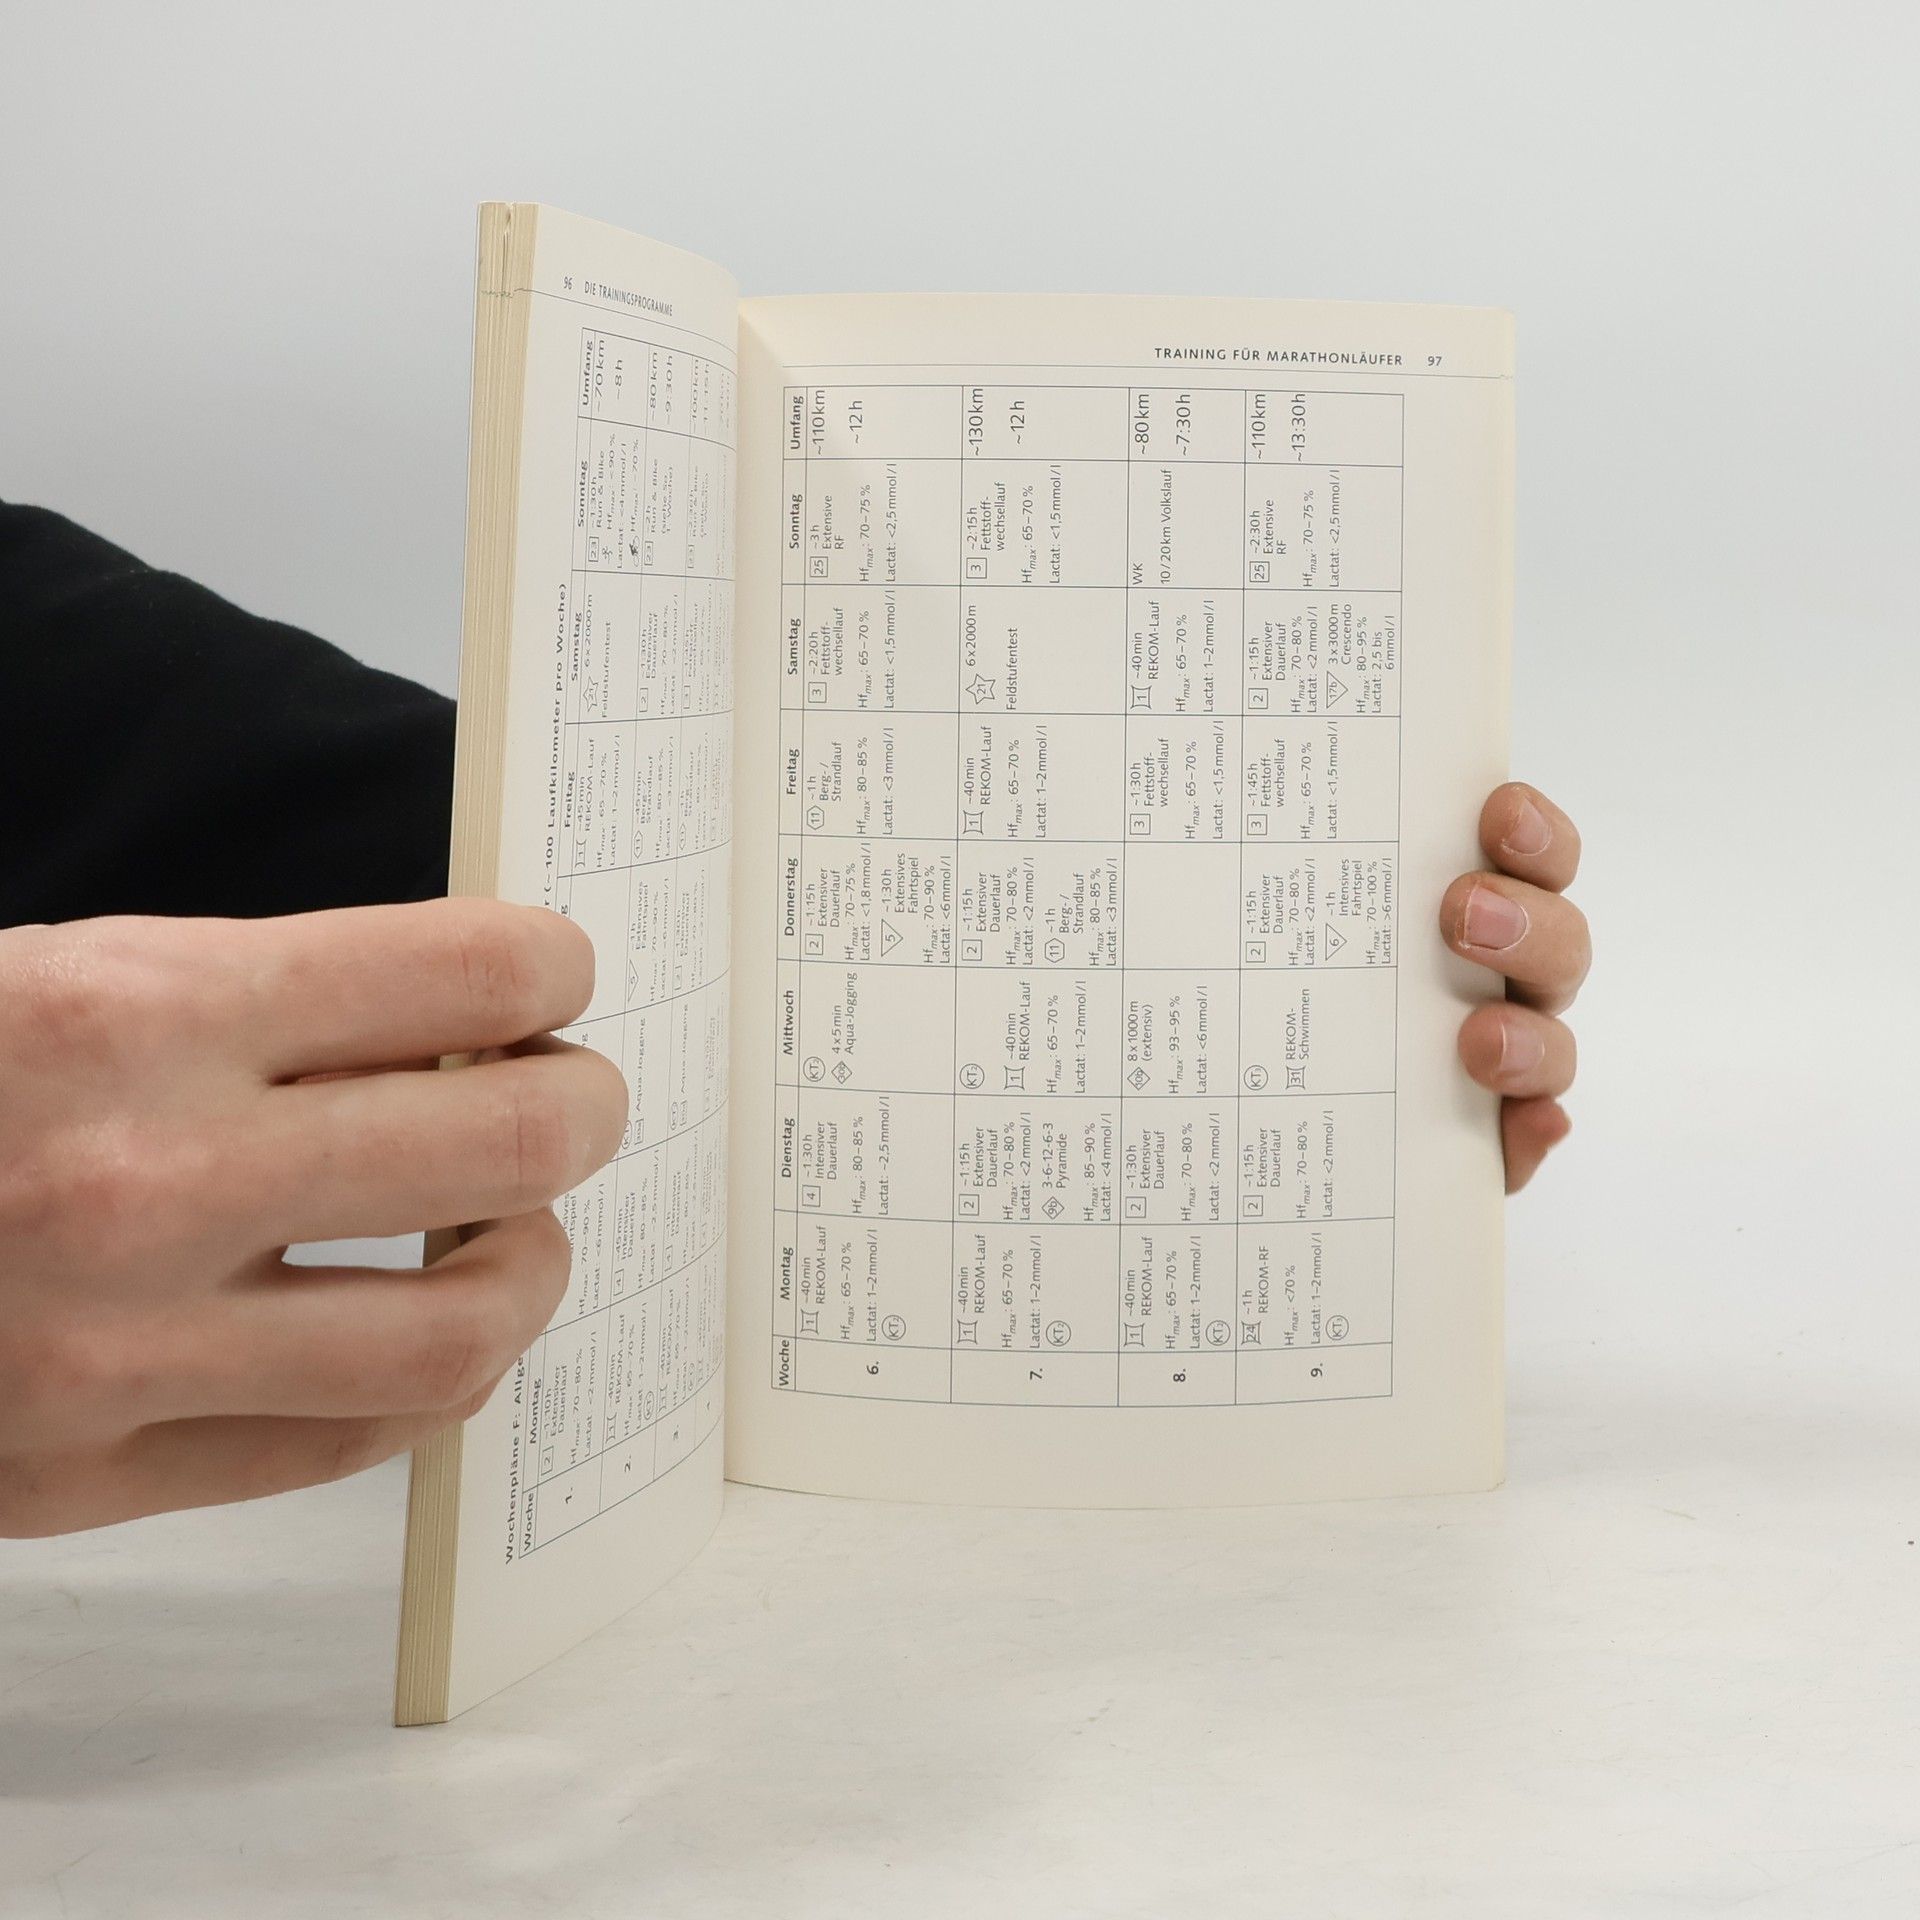 96 DIE TRAININGSPROGRAMME
Wochenpläne F: Allge
r (~100 Laufkilometer pro Woche)
Woche
Montag
Freitag
Samstag
Sonntag
Umfang
1.
2 ~1:10h
Extensiver
Dauerlauf
Hfmax: 70–80%
Lactat: <2mmol/l
Hfmax: 70–90%
Lactat: <6mmol/l
1 ~45min
REKOM-Lauf
Hfmax: 65–70%
Lactat: 1–2mmol/l
21 6x2000m
Feldstufentest
23 ~1:30h
Run & Bike
Hfmax: <90%
Lactat: <4mmol/l
Hfmax: ~70%
~70km
~8h
2.
1 ~40min
REKOM-Lauf
Hfmax: 65–70%
Lactat: 1–2mmol/l
4 ~45min
Intensiver
Dauerlauf
Hfmax: 80–85%
Lactat: ~2,5mmol/l
Aqua-Jogging
5 ~1h
Extensives
Fahrtspiel
Hfmax: 70–90%
Lactat: <6mmol/l
11 ~45min
Berg-/
Strandlauf
Hfmax: 80–85%
Lactat: <3mmol/l
2 ~1:30h
Extensiver
Dauerlauf
Hfmax: 70–80%
Lactat: <2mmol/l
23 ~2h
Run & Bike
(siehe So.
1. Woche)
~80km
~9:30h
3.
4.
TRAINING FÜR MARATHONLÄUFER 97
Woche
Montag
Dienstag
Mittwoch
Donnerstag
Freitag
Samstag
Sonntag
Umfang
6.
1 ~40min
REKOM-Lauf
Hfmax: 65–70%
Lactat: 1–2mmol/l
KT2
4 ~1:30h
Intensiver
Dauerlauf
Hfmax: 80–85%
Lactat: ~2,5mmol/l
KT2
30b 4x5min
Aqua-Jogging
2 ~1:15h
Extensiver
Dauerlauf
Hfmax: 70–75%
Lactat: <1,8mmol/l
5 ~1:30h
Extensives
Fahrtspiel
Hfmax: 70–90%
Lactat: <6mmol/l
11 ~1h
Berg-/
Strandlauf
Hfmax: 80–85%
Lactat: <3mmol/l
3 ~2:20h
Fettstoff-
wechsellauf
Hfmax: 65–70%
Lactat: <1,5mmol/l
25 ~3h
Extensive
RF
Hfmax: 70–75%
Lactat: <2,5mmol/l
~110km
~12h
7.
1 ~40min
REKOM-Lauf
Hfmax: 65–70%
Lactat: 1–2mmol/l
KT2
2 ~1:15h
Extensiver
Dauerlauf
Hfmax: 70–80%
Lactat: <2mmol/l
9b 3-6-12-6-3
Pyramide
Hfmax: 85–90%
Lactat: <4mmol/l
KT2
1 ~40min
REKOM-Lauf
Hfmax: 65–70%
Lactat: 1–2mmol/l
2 ~1:15h
Extensiver
Dauerlauf
Hfmax: 70–80%
Lactat: <2mmol/l
11 ~1h
Berg-/
Strandlauf
Hfmax: 80–85%
Lactat: <3mmol/l
1 ~40min
REKOM-Lauf
Hfmax: 65–70%
Lactat: 1–2mmol/l
21 6x2000m
Feldstufentest
3 ~2:15h
Fettstoff-
wechsellauf
Hfmax: 65–70%
Lactat: <1,5mmol/l
~130km
~12h
8.
1 ~40min
REKOM-Lauf
Hfmax: 65–70%
Lactat: 1–2mmol/l
KT2
2 ~1:30h
Extensiver
Dauerlauf
Hfmax: 70–80%
Lactat: <2mmol/l
10b 8x1000m
(extensiv)
Hfmax: 93–95%
Lactat: <6mmol/l
3 ~1:30h
Fettstoff-
wechsellauf
Hfmax: 65–70%
Lactat: <1,5mmol/l
1 ~40min
REKOM-Lauf
Hfmax: 65–70%
Lactat: 1–2mmol/l
WK
10/20km Volkslauf
~80km
~7:30h
9.
24 ~1h
REKOM-RF
Hfmax: <70%
Lactat: 1–2mmol/l
2 ~1:15h
Extensiver
Dauerlauf
Hfmax: 70–80%
Lactat: <2mmol/l
31 REKOM-
Schwimmen
2 ~1:15h
Extensiver
Dauerlauf
Hfmax: 70–80%
Lactat: <2mmol/l
6 ~1h
Intensives
Fahrtspiel
Hfmax: 70–100%
Lactat: >6mmol/l
3 ~1:45h
Fettstoff-
wechsellauf
Hfmax: 65–70%
Lactat: <1,5mmol/l
2 ~1:15h
Extensiver
Dauerlauf
Hfmax: 70–80%
Lactat: <2mmol/l
17b 3x3000m
Crescendo
Hfmax: 80–95%
Lactat: 2,5 bis
6mmol/l
25 ~2:30h
Extensive
RF
Hfmax: 70–75%
Lactat: <2,5mmol/l
~110km
~13:30h